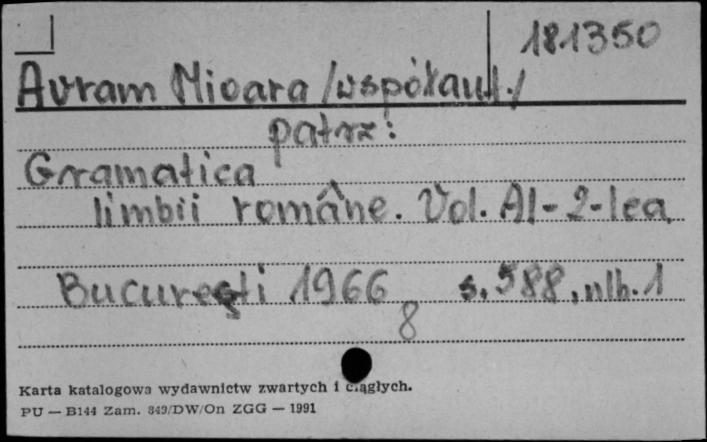 181350
Avram Mioara /współaut./
patrz:
Gramatica
limbii române. Vol. Al-2-lea
București 1966 s. 588, nlb. 1
8
Karta katalogowa wydawnictw zwartych i ciągłych.
PU — B144 Zam. 849/DW/On ZGG — 1991